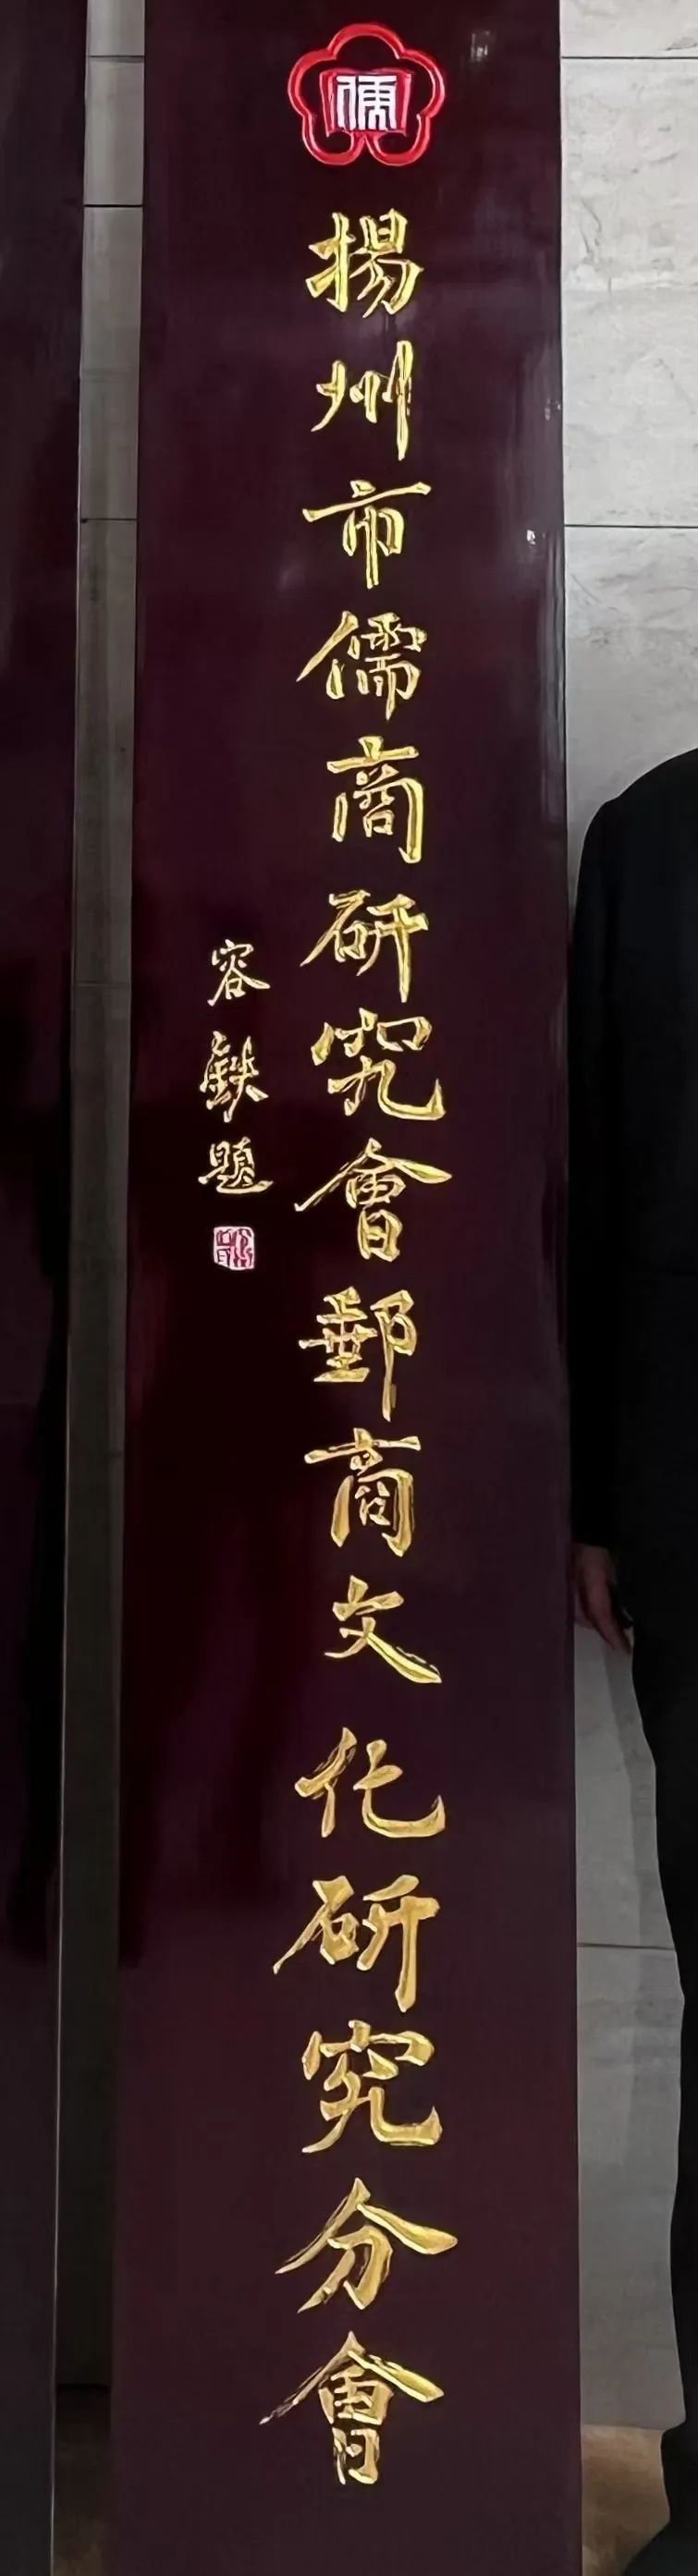 儒
揚州市儒商研究會郵商文化研究分會
容鉄題